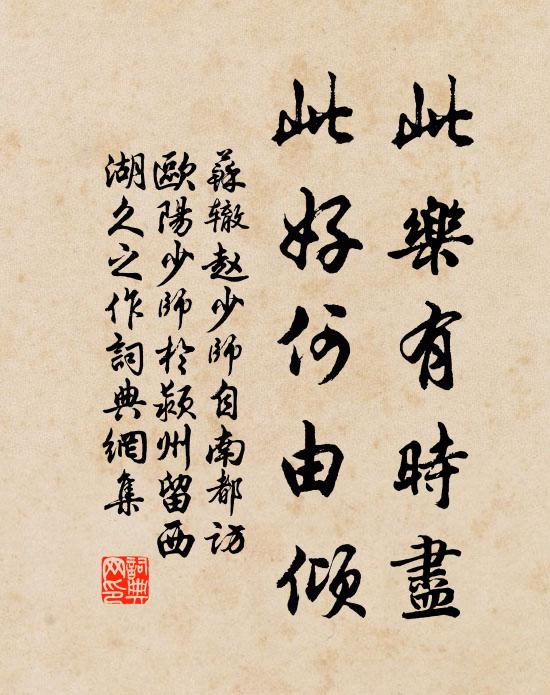 此樂有時盡
此好何由傾
蘇辙赵少師自南都访
歐陽少師於颍州留西
湖久之作詞典網集
詞典网印